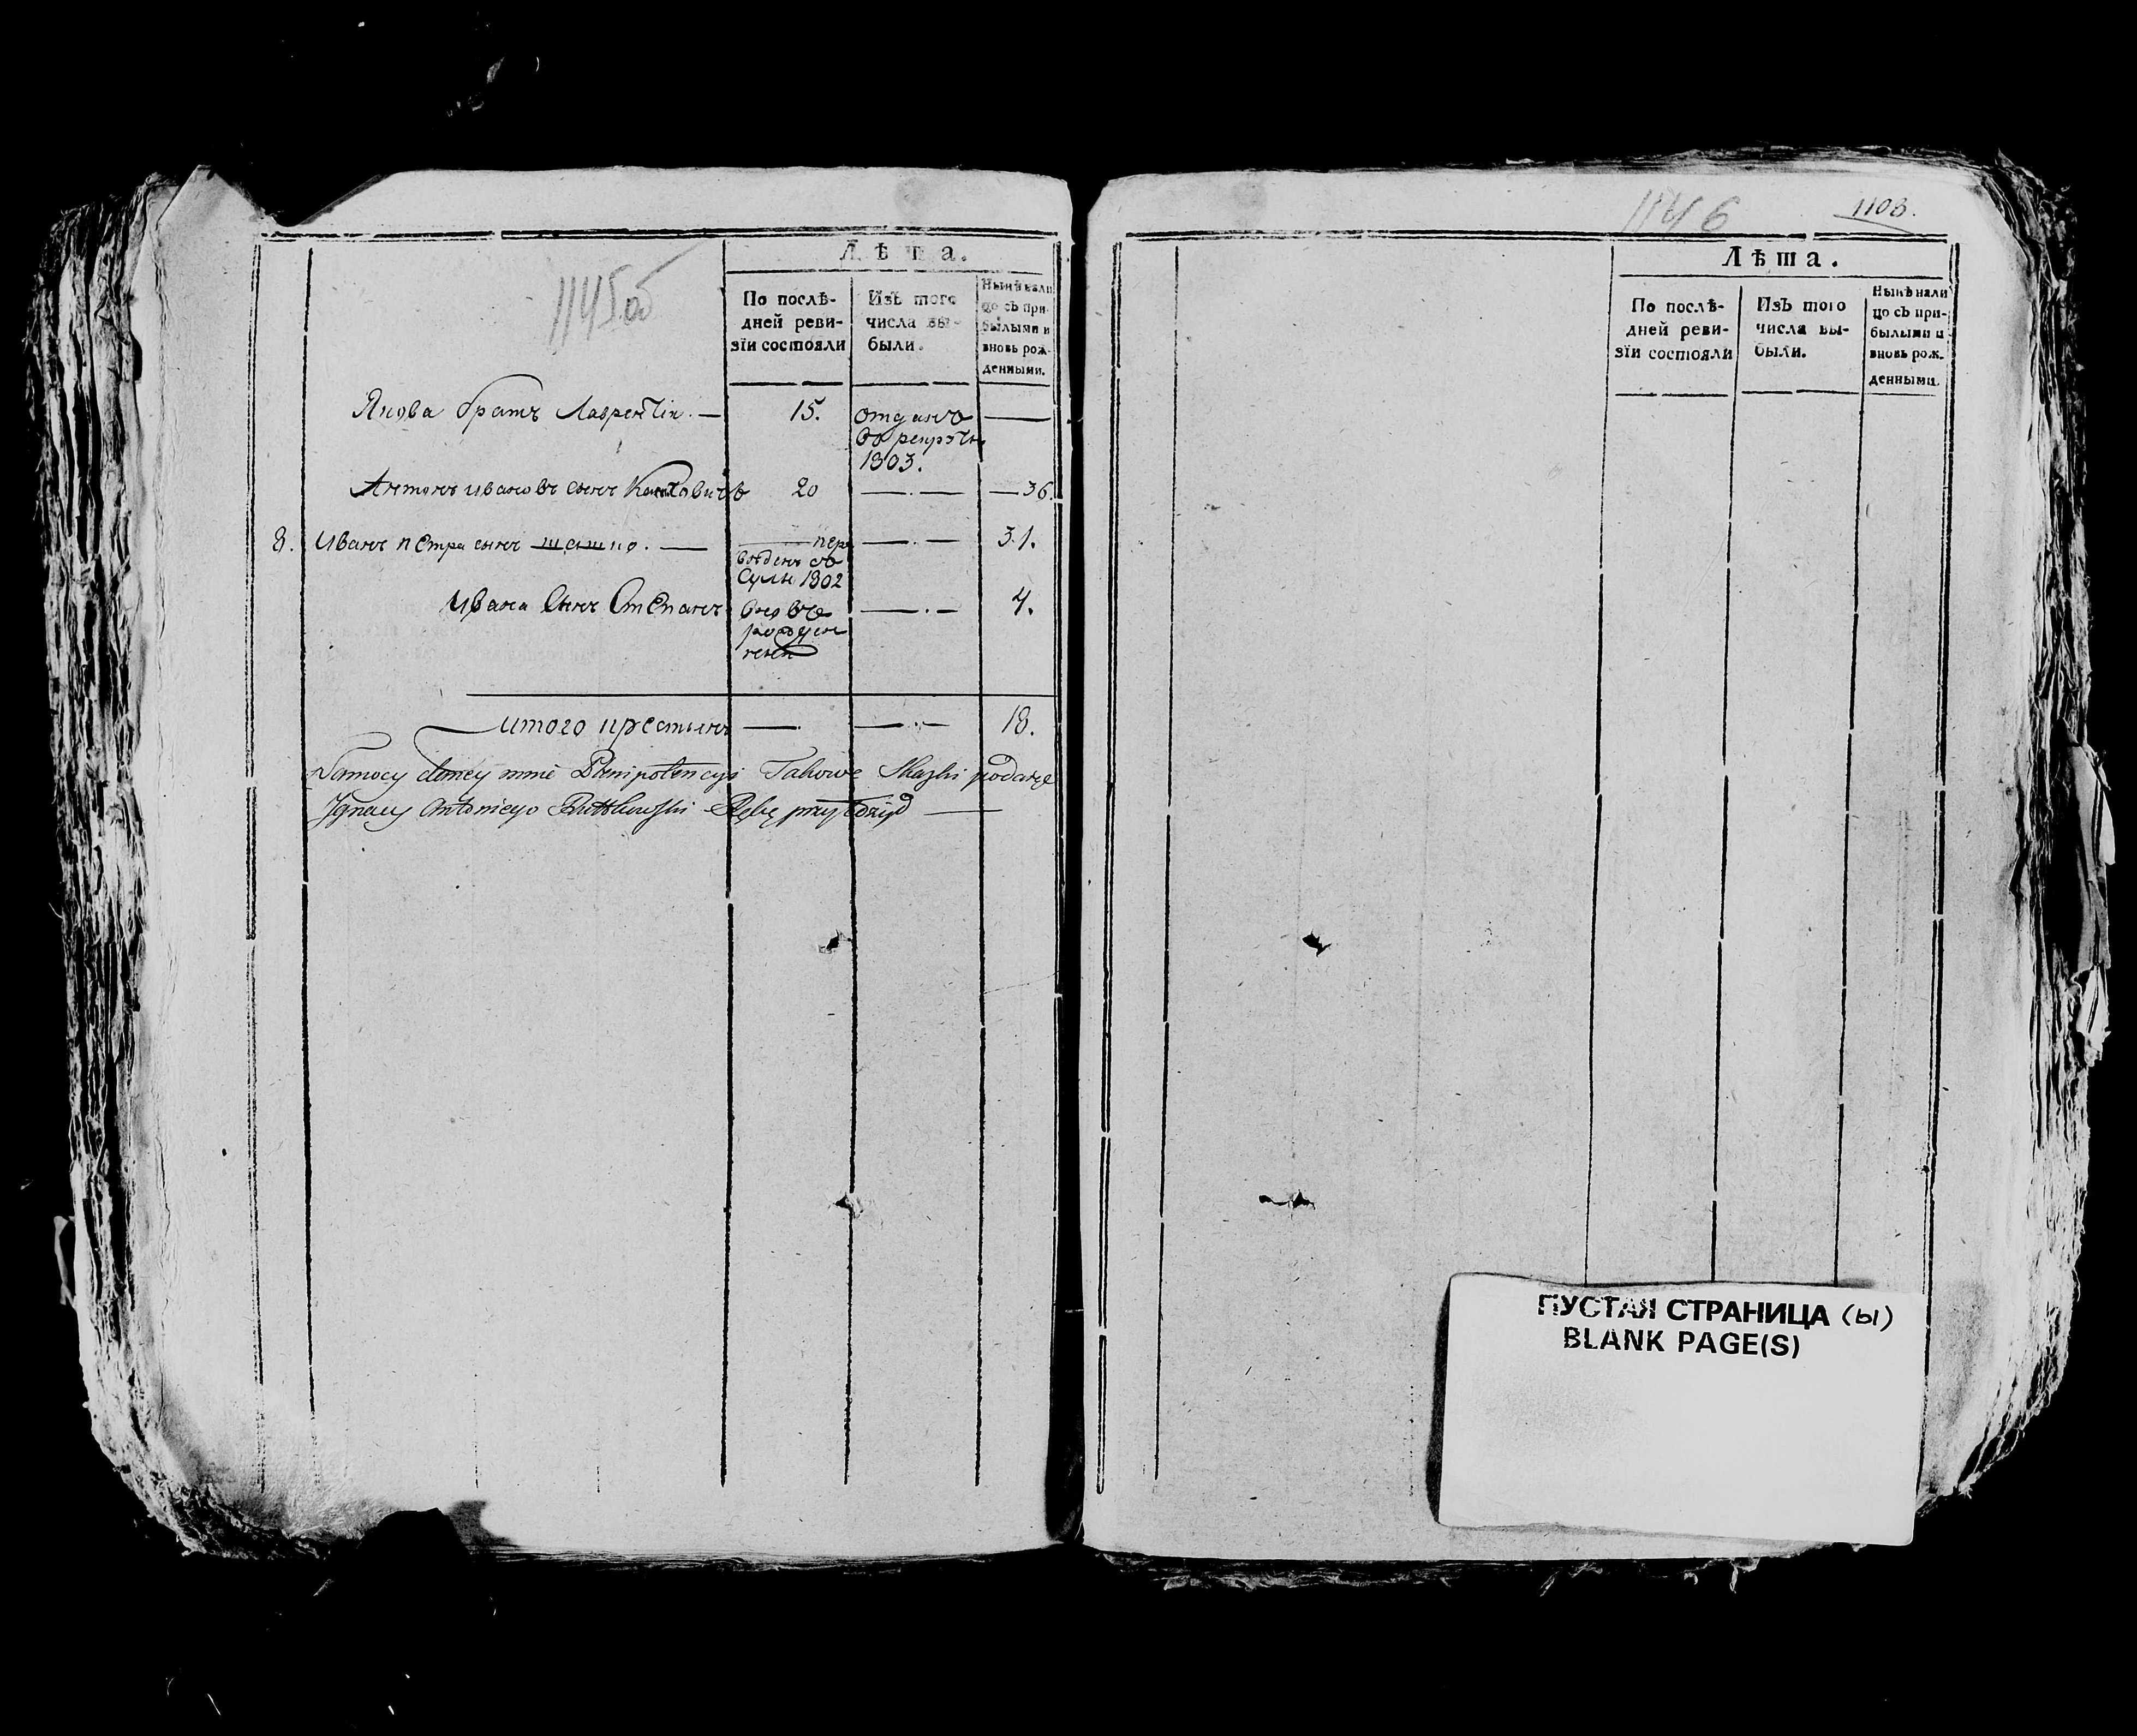 1145об
Лѣта.
По послѣ-
дней реви-
зїи состояли
Изъ того
числа вы-
были.
Нынѣ нали
цо съ при-
былыми и
вновь рож-
денными.
Якова братъ Лаврентiи. — 15. отданъ —
въ рекруты
1803.
Антонъ ивановъ сынъ 20 — . — — 36.
8. Иванъ петра сынъ — пере — . — 31.
веденъ съ
1802
Ивана Сынъ Степанъ вновь — . — 4.
рожден
ный
итого крестьянъ — . — . — 18.
Zamocy daney mnie Plenipotencyi Takowe Skazki podaię
Ignacy Antoniego Rękę
1146
1103.
Лѣта.
По послѣ-
дней реви-
зїи состояли
Изъ того
числа вы-
были.
Нынѣ нали
цо съ при-
былыми и
вновь рож-
денными.
ПУСТАЯ СТРАНИЦА (Ы)
BLANK PAGE(S)